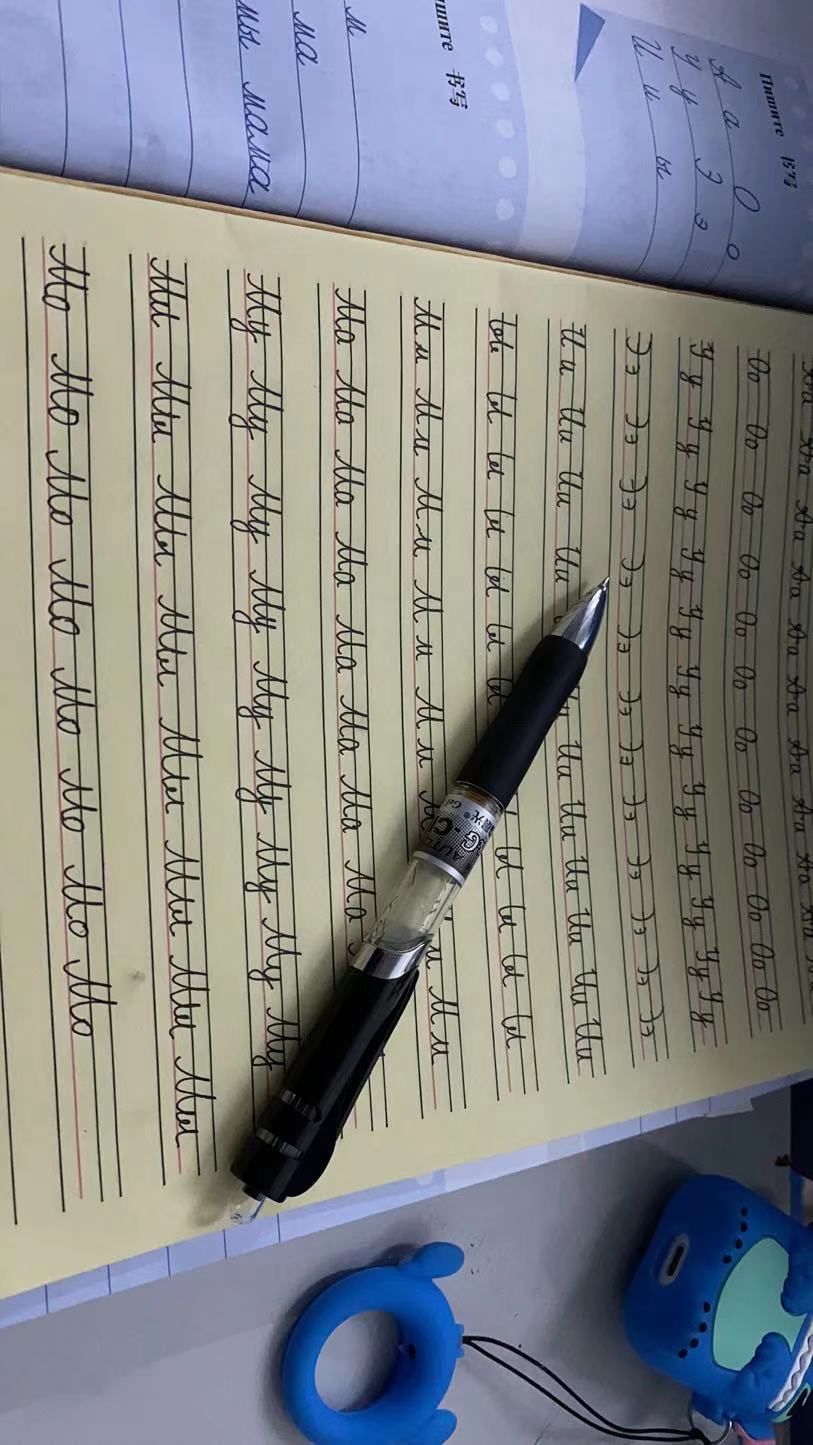 Пишите 书写
А а О о
У у Э э
И и ы
Пишите 书写
м
ма
мы мама
Аа Аа Аа Аа Аа Аа Аа Аа Аа Аа
Оо Оо Оо Оо Оо Оо Оо Оо Оо Оо Оо Оо
Уу Уу Уу Уу Уу Уу Уу Уу Уу Уу Уу Уу
Ээ Ээ Ээ Ээ Ээ Ээ Ээ Ээ Ээ Ээ Ээ Ээ
Ии Ии Ии Ии Ии Ии Ии Ии Ии Ии
ы ы ы ы ы ы ы ы ы ы ы ы
Мм Мм Мм Мм Мм Мм
Ма Ма Ма Ма Ма Ма Ма Ма
Му Му Му Му Му Му Му Му Му
Мы Мы Мы Мы Мы Мы Мы Мы
Мо Мо Мо Мо Мо Мо Мо Мо